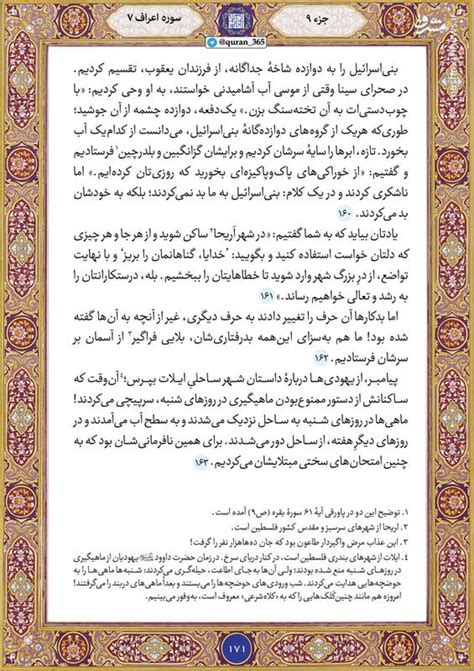 جزء ۹
سوره اعراف ۷
@quran_365
مشرق
بنی‌اسرائیل را به دوازده شاخهٔ جداگانه، از فرزندان یعقوب، تقسیم کردیم.
در صحرای سینا وقتی از موسی آب آشامیدنی خواستند، به او وحی کردیم: «با
چوب‌دستی‌ات به آن تخته‌سنگ بزن.» یک‌دفعه، دوازده چشمه از آن جوشید؛
طوری‌که هریک از گروه‌های دوازده‌گانهٔ بنی‌اسرائیل، می‌دانست از کدام یک آب
بخورد. تازه، ابرها را سایهٔ سرشان کردیم و برایشان گزانگبین و بلدرچین۱ فرستادیم
و گفتیم: «از خوراکی‌های پاک‌وپاکیزه‌ای بخورید که روزی‌تان کرده‌ایم.» اما
ناشکری کردند و در یک کلام: بنی‌اسرائیل به ما بد نمی‌کردند؛ بلکه به خودشان
بد می‌کردند. ۱۶۰
یادتان بیاید که به شما گفتیم: «در شهر اَریحا۲ ساکن شوید و از هر جا و هر چیزی
که دلتان خواست استفاده کنید و بگویید: ʻخدایا، گناهانمان را بریزʼ و با نهایت
تواضع، از درِ بزرگ شهر وارد شوید تا خطاهایتان را ببخشیم. بله، درستکارانتان را
به رشد و تعالی خواهیم رساند.» ۱۶۱
اما بدکارها آن حرف را تغییر دادند به حرف دیگری، غیر از آنچه به آن‌ها گفته
شده بود! ما هم به‌سزای این‌همه بدرفتاری‌شان، بلایی فراگیر۳ از آسمان بر
سرشان فرستادیم. ۱۶۲
پیامبر، از یهودی‌ها دربارهٔ داستان شهر ساحلی ایلات بپرس؛۴ آن‌وقت که
ساکنانش از دستور ممنوع‌بودن ماهیگیری در روزهای شنبه، سرپیچی می‌کردند!
ماهی‌ها در روزهای شنبه به ساحل نزدیک می‌شدند و به سطح آب می‌آمدند و در
روزهای دیگرِ هفته، از ساحل دور می‌شدند. برای همین نافرمانی‌شان بود که به
چنین امتحان‌های سختی مبتلایشان می‌کردیم. ۱۶۳
۱. توضیح این دو در پاورقی آیهٔ ۶۱ سورهٔ بقره (ص۹) آمده است.
۲. اریحا از شهرهای سرسبز و مقدس کشور فلسطین است.
۳. این عذاب مرض واگیردار طاعون بود که جان ده‌ها هزار نفر را گرفت!
۴. ایلات از شهرهای بندری فلسطین است، در کنار دریای سرخ. در زمان حضرت داوود یهودیان از ماهیگیری
در روزهای شنبه منع شده بودند؛ ولی آن‌ها به‌جای اطاعت، حیله‌گری می‌کردند: شنبه‌ها ماهی‌ها را به
حوضچه‌هایی هدایت می‌کردند. شب ورودی‌های حوضچه‌ها را می‌بستند و بعداً ماهی‌های دربند را می‌گرفتند!
امروزه هم مانند چنین کلک‌هایی را که به «کلاه‌شرعی» معروف است، به‌وفور می‌بینیم.
۱۷۱